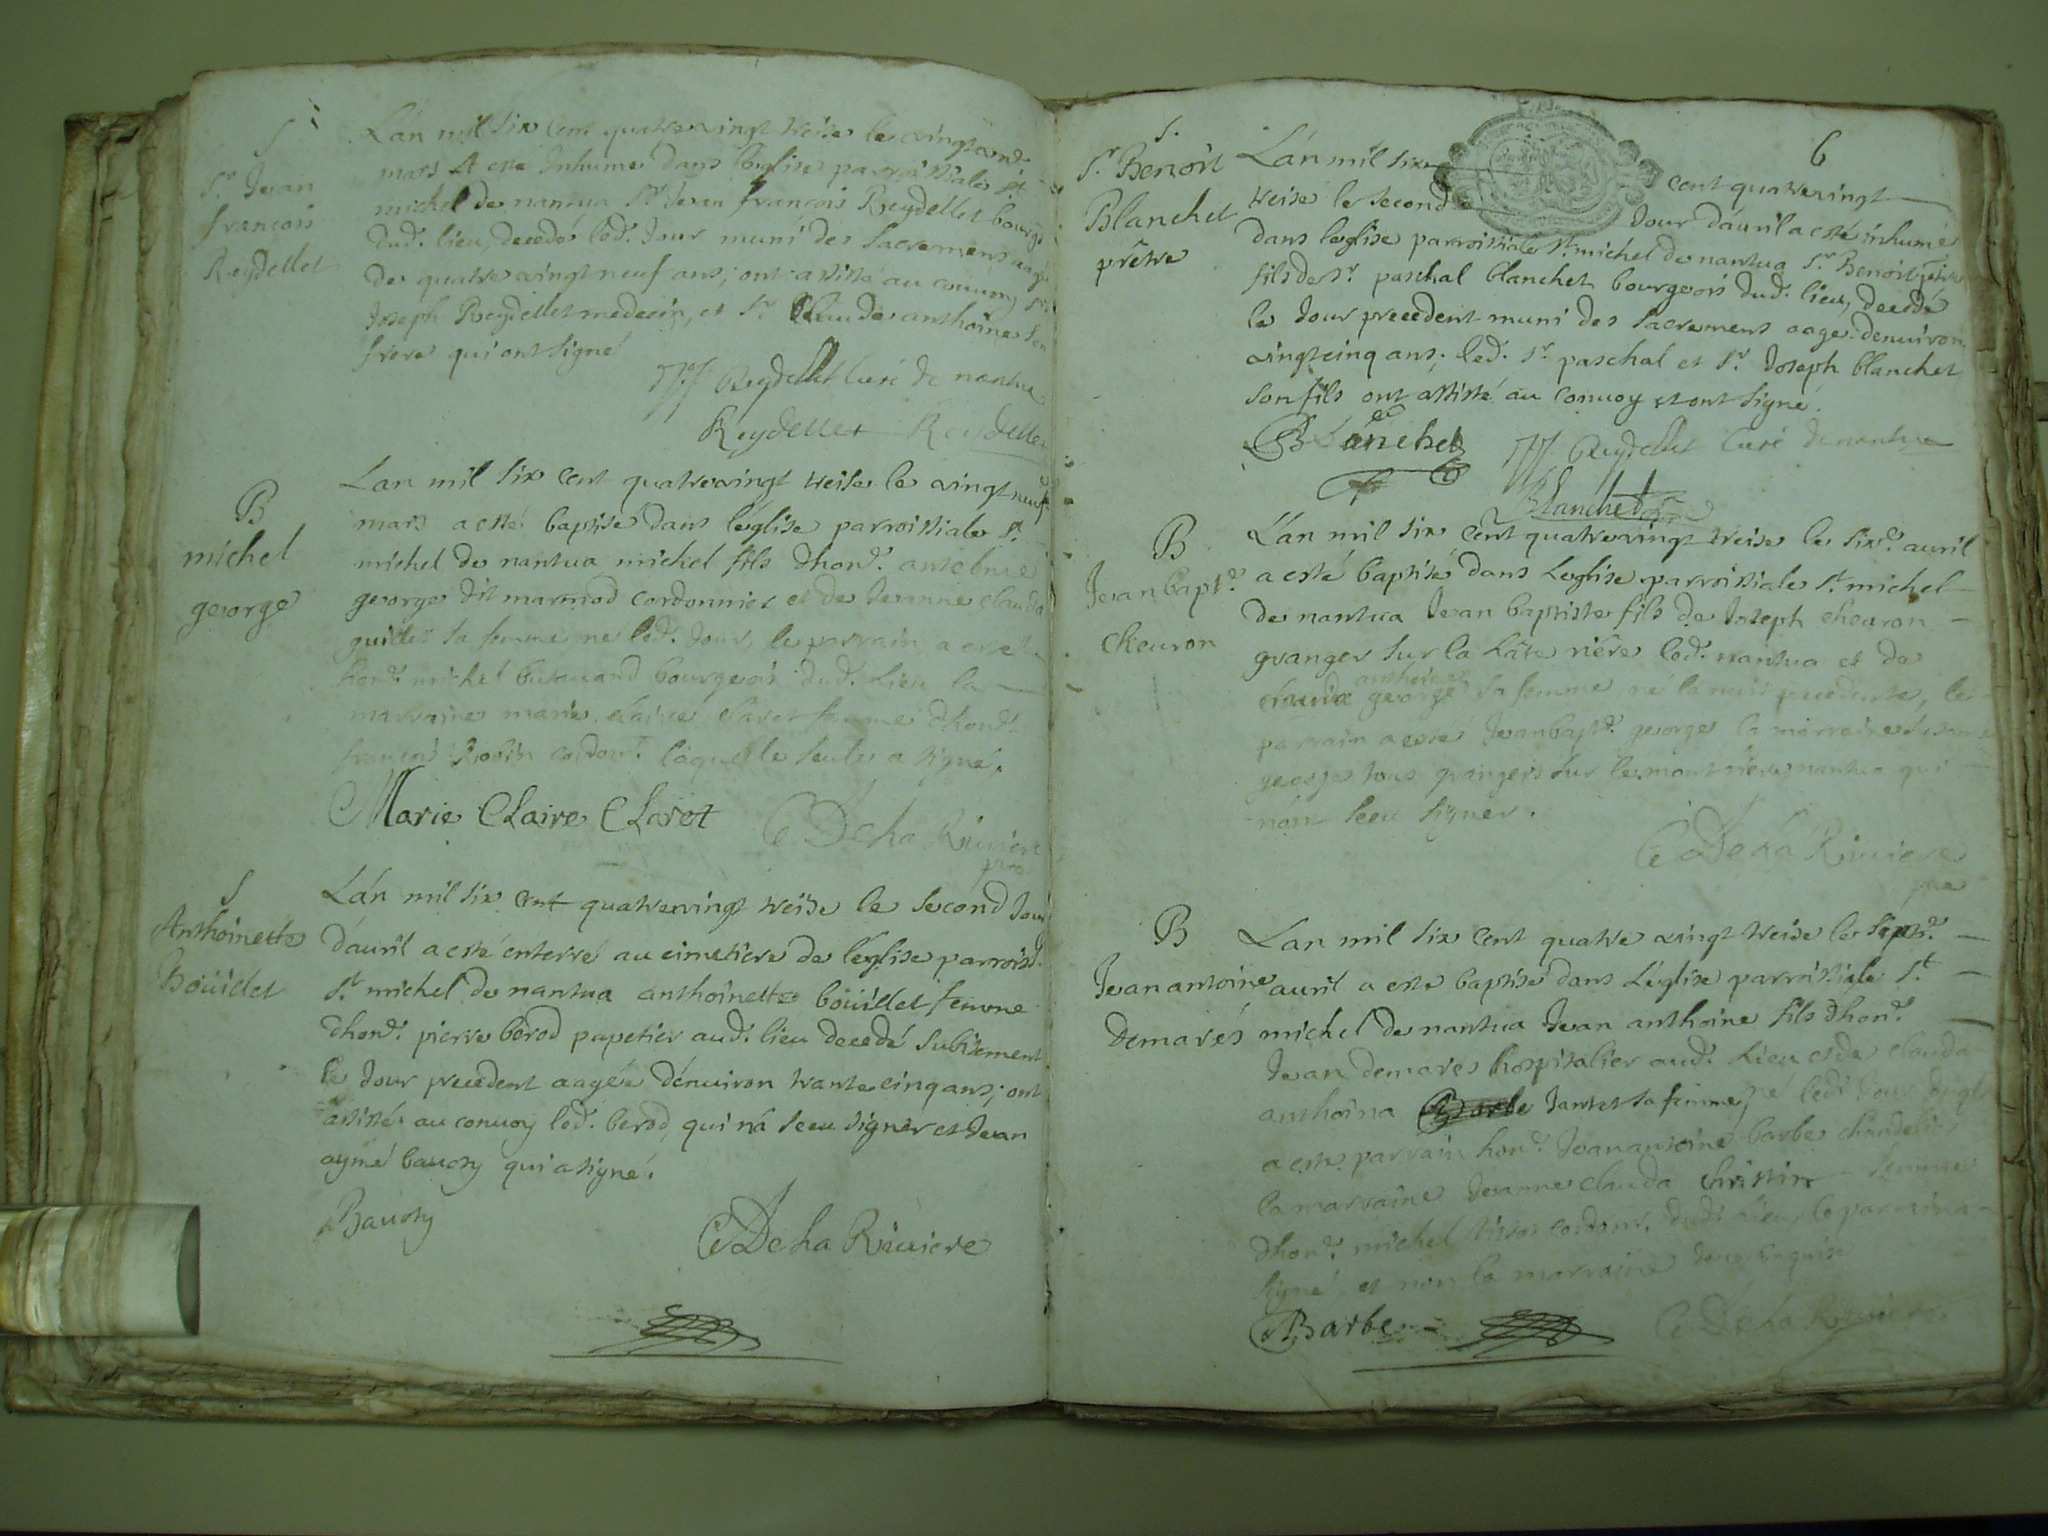 S
Sr Jean
françois
Reydellet
Lán mil six cent quatrevingt treise le vingt
mars A esté Inhumé dans léglise parroissiale St
michel de nantua Sr Jean françois Reydellet bourgs
dud. lieu, decedé led. Jour muni des Sacremens aagé
de quatre vingt neuf ans; ont assisté au convoy Sr
Joseph Reydellet medecin, et Sr Claude anthoine Son
frere qui ont signé
Reydellet Curé de nantua
Reydellet Reydellet
B
michel
george
Lan mil six cent quatrevingt treise le vingt neuf
mars a esté baptisé dans léglise parroissiale St
michel de nantua michel fils dhon.e antelme
george dit marmod cordonnier et de Jeanne clauda
guillet sa femme né led. Jour, le parrain a esté
hon.e michel bourgeois dud. Lieu la
marraine marie claire claret femme dhon.e
françois Robin cordon.r laquelle seule a signé.
Marie Claire Claret De La Riviere
pre
S
Anthoinette
Boüillet
Lán mil six cent quatrevingt treise le second Jour
dáuril a esté enterré au cimetiere de léglise parroiss.
St michel de nantua anthoinette boüillet femme
dhon.e pierre berod papetier aud. lieu decedé subitement
le Jour precedent aagée dénuiron trante cinq ans; ont
assisté au conuoy led. berod, qui ná sceu signer et Jean
aymé baudy qui a signé.
Baudy De La Riuiere
6
S.
Sr Benoit
Blanchet
prêtre
Lán mil six cent quatrevingt
treise le second Jour dáuril a esté inhumé
dans léglise parroissiale St michel de nantua Sr Benoit prêtre
fils de Sr paschal blanchet bourgeois dud. lieu, decedé
le Jour precedent muni des Sacremens aagé denuiron
vingtcinq ans. led. Sr paschal et Sr Joseph blanchet
son fils ont assisté au conuoy et ont signé.
Blanchet Reydellet Curé de nantua
Blanchet
B
Jean bapt.e
cheuron
Lán mil six cent quatrevingt treise le six.e auril
a esté baptisé dans Leglise parroissiale St michel
de nantua Jean baptiste fils de Joseph cheuron
granger sur la Lâte riére led. nantua et de
claude anthoine george sa femme, né la nuit precedente, le
parrain a esté Jean bapt.e george la marraine Susanne
george tous grangers sur le mont riére nantua qui
nont sceu signer.
De La Riuiere
pre
B
Jean antoine
Demarés
Lan mil six cent quatre vingt treise le sept.e
auril a esté baptisé dans Léglise parroissiale St
michel de nantua Jean anthoine fils dhon.e
Jean demarés hospitalier aud. Lieu et de clauda
anthoina Jantet sa femme, né led. Jour
a esté parrain hon.e Jean antoine barbe
la marraine Jeanne clauda christin femme
dhon.e michel cordon.r dud. Lieu, le parrain a
signé, et non la marraine de ce enquise
Barbe De La Riuiere